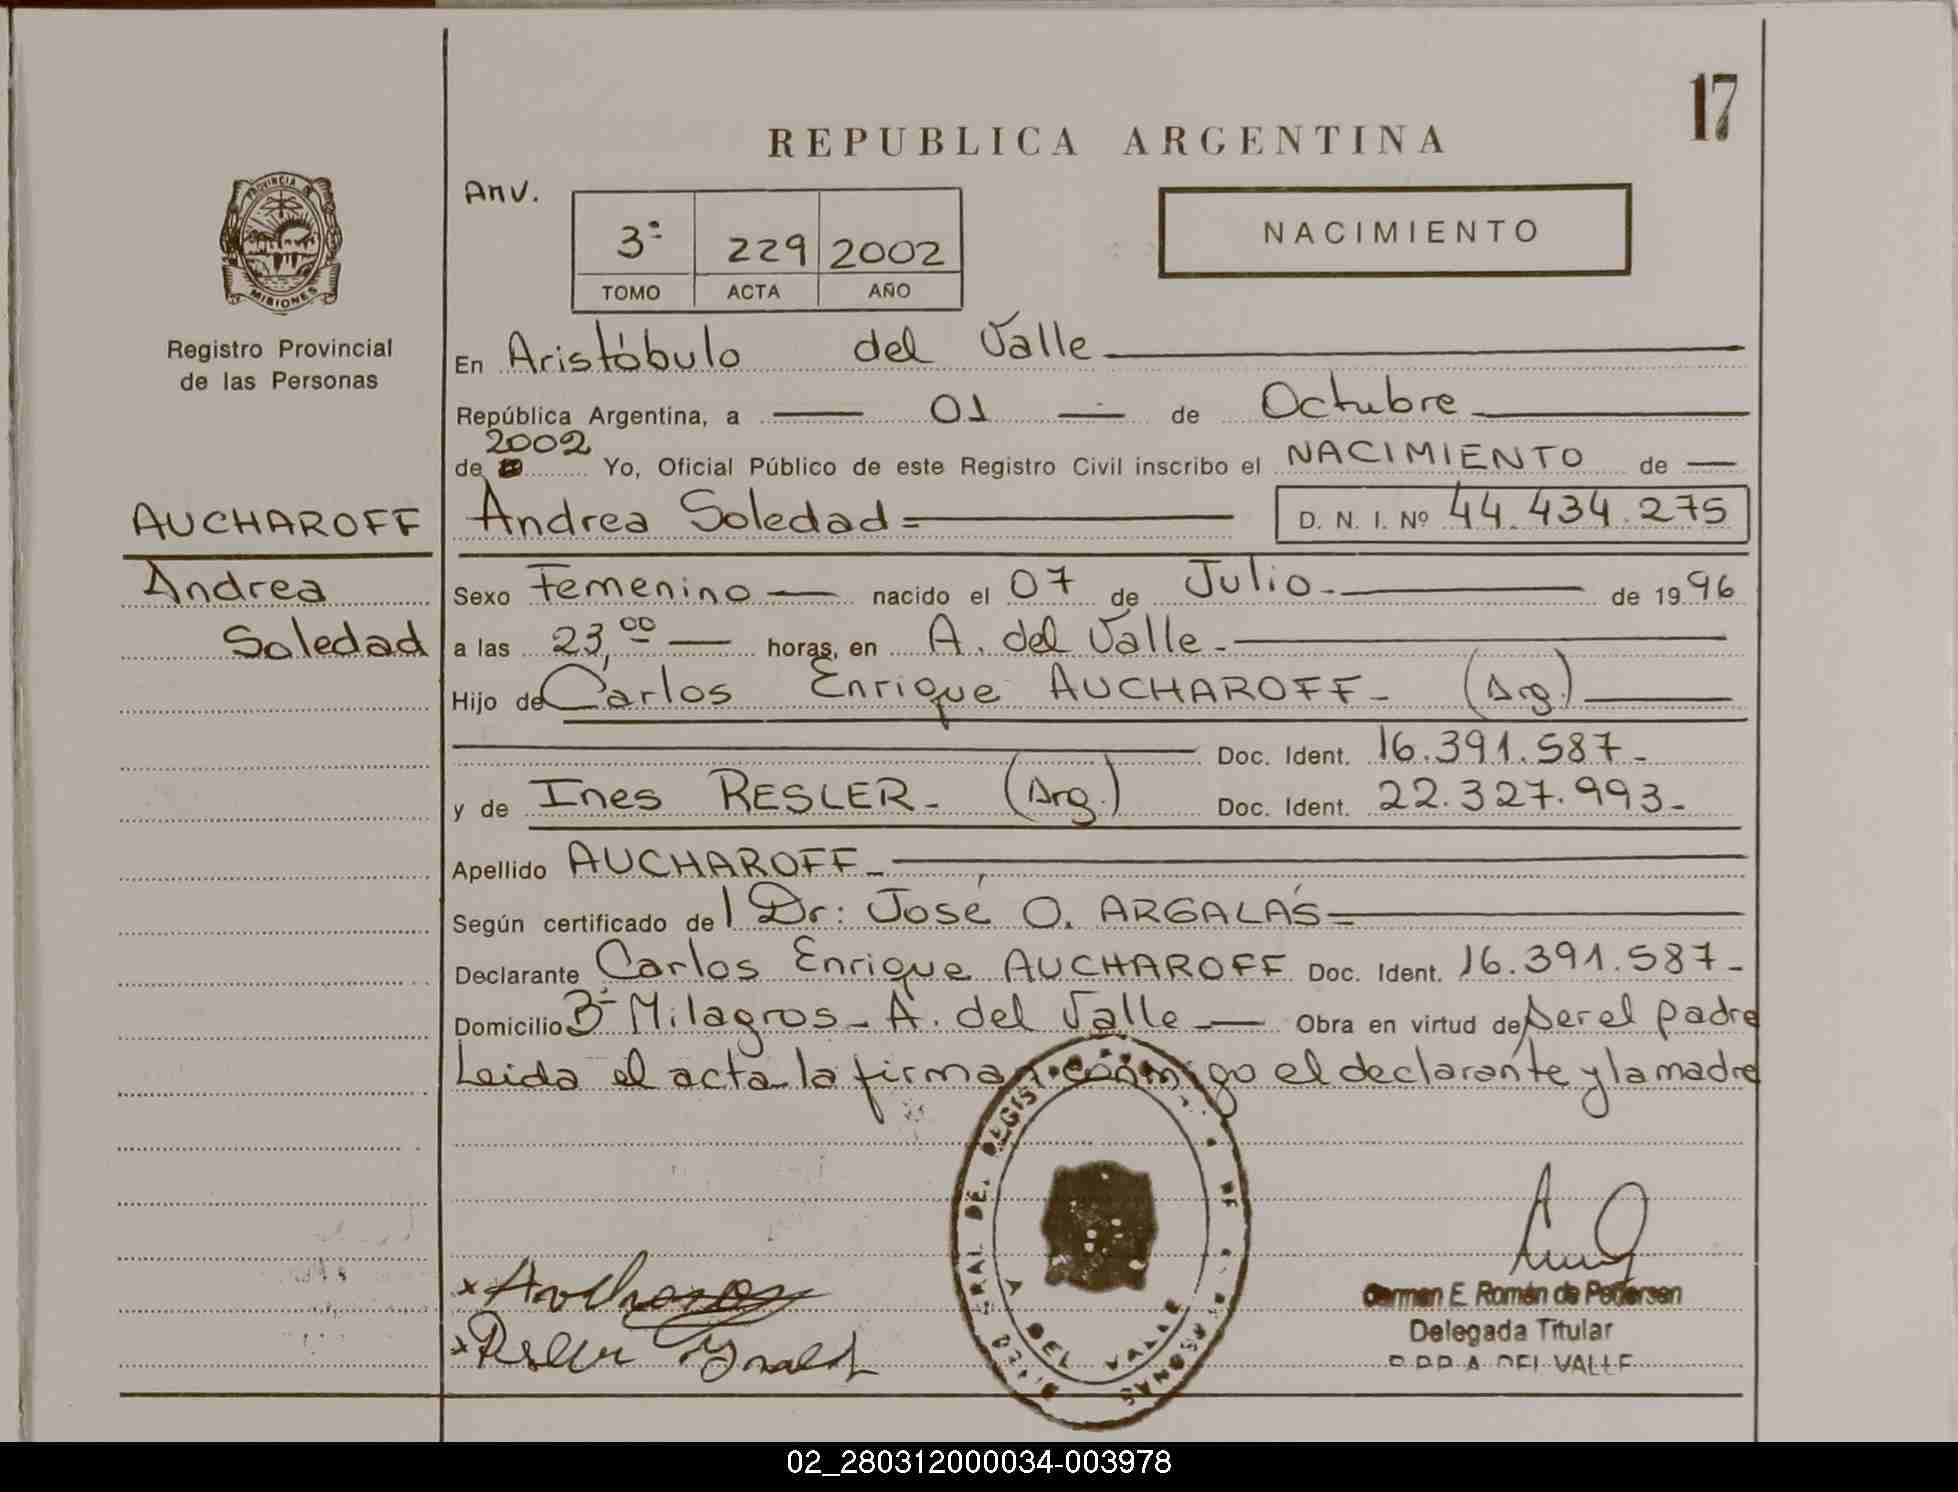 17
REPUBLICA ARGENTINA
Anv.
PROVINCIA DE
MISIONES
3ª 229 2002
TOMO ACTA AÑO
NACIMIENTO
Registro Provincial
de las Personas
En Aristóbulo del Valle
República Argentina, a 01 de Octubre
de 2002 Yo, Oficial Público de este Registro Civil inscribo el NACIMIENTO de
AUCHAROFF Andrea Soledad = D. N. I. Nº 44.434.275
Andrea
Soledad
Sexo Femenino nacido el 07 de Julio de 1996
a las 23,00 horas, en A. del Valle
Hijo de Carlos Enrique AUCHAROFF - (Arg.)
Doc. Ident. 16.391.587-
y de Ines RESLER - (Arg.) Doc. Ident. 22.327.993-
Apellido AUCHAROFF -
Según certificado del Dr: José O. ARGALÁS =
Declarante Carlos Enrique AUCHAROFF Doc. Ident. 16.391.587-
Domicilio Bº Milagros - A. del Valle - Obra en virtud de ser el padre
Leida el acta la firman conmigo el declarante y la madre
Carmen E. Román de Pedersen
Delegada Titular
A. DEL VALLE
A DEL VALLE
02_280312000034-003978